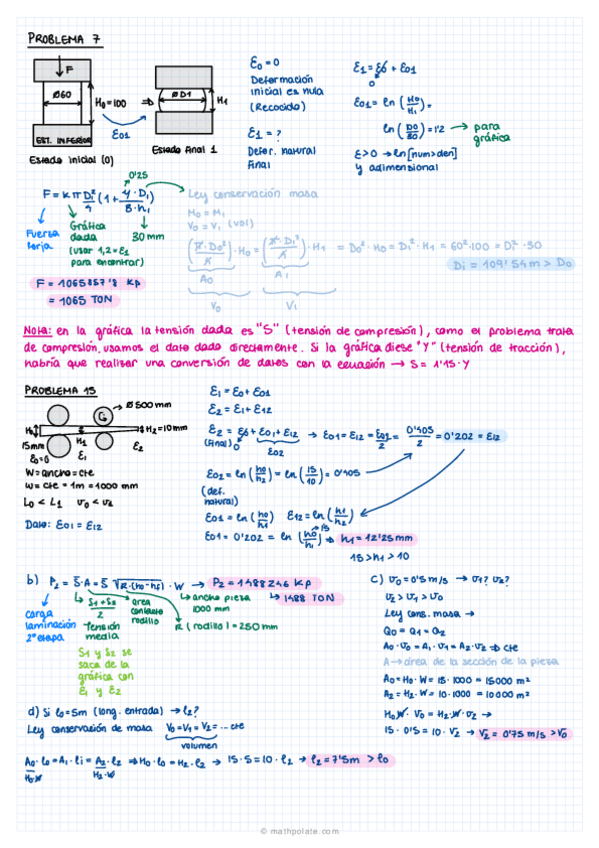 PROBLEMA 7
F
Ø60
H₀=100
⇒
Ø D1
H1
EST. INFERIOR
Ɛ01
Estado inicial (0)
Estado final 1
Ɛ0 = 0
Deformación
inicial es nula
(Recocido)
Ɛ1 = ?
Defor. natural
final
Ɛ1 = Ɛ0 + Ɛ01
0
Ɛ01 = ln (H0/H1) =
ln (D0/30) = 1'2 → para
gráfica
Ɛ>0 → ln[num>den]
y adimensional
0'25
F = K π D1²/4 (1 + 4·D1/B·h1)
Fuerza
forja
Gráfica
dada
(usar 1,2=Ɛ1
para encontrar)
30 mm
F = 1065857'8 Kp
= 1065 TON
Ley conservación masa
M0 = M1
V0 = V1 (vol)
(π·D0²/4)·H0 = (π·D1²/4)·H1 = D0²·H0 = D1²·H1 = 60²·100 = D1²·30
A0
A1
V0
V1
D1 = 109'54m > D0
Nota: en la gráfica la tensión dada es "S" (tensión de compresión), como el problema trata
de compresión, usamos el dato dado directamente. Si la gráfica diese "Y" (tensión de tracción),
habría que realizar una conversión de datos con la ecuación → S = 1'15·Y
PROBLEMA 15
Ø 500 mm
H0
H1
H2=10mm
15mm
Ɛ0=0
Ɛ1
Ɛ2
W = ancho = cte
W = cte = 1m = 1000 mm
L0 < L1 v0 < v2
Dato: Ɛ01 = Ɛ12
Ɛ1 = Ɛ0 + Ɛ01
Ɛ2 = Ɛ1 + Ɛ12
Ɛ2 = Ɛ0 + Ɛ01 + Ɛ12 → Ɛ01 = Ɛ12 = Ɛ02/2 = 0'405/2 = 0'202 = Ɛ12
(final) 0
Ɛ02
Ɛ02 = ln (h0/h2) = ln (15/10) = 0'405
(def.
natural)
Ɛ01 = ln (h0/h1) Ɛ12 = ln (h1/h2)
Ɛ01 = 0'202 = ln (h0/h1) → h1 = 12'25mm
15
15 > h1 > 10
b) P2 = S̄·A = S̄ √R·(h0-hf) · W → P2 = 1488246 Kp
→ 1488 TON
carga
laminación
2ª etapa
S1+S2/2
Tensión
media
area
contacto
rodillo
ancho pieza
1000 mm
R (rodillo) = 250 mm
S1 y S2 se
saca de la
gráfica con
Ɛ1 y Ɛ2
c) v0 = 0'5 m/s → v1? v2?
v2 > v1 > v0
Ley cons. masa →
Q0 = Q1 = Q2
A0·v0 = A1·v1 = A2·v2 ⇒ cte
A → área de la sección de la pieza
A0 = H0·W = 15·1000 = 15000 m²
A2 = H2·W = 10·1000 = 10000 m²
H0·W·v0 = H2·W·v2 →
15·0'5 = 10·v2 → v2 = 0'75 m/s > v0
d) Si l0 = 5m (long. entrada) → l2?
Ley conservación de masa V0 = V1 = V2 = ... cte
volumen
A0·l0 = A1·l1 = A2·l2 ⇒ H0·l0 = H2·l2 → 15·5 = 10·l2 → l2 = 7'5m > l0
H0·W
H2·W
© mathpolate.com